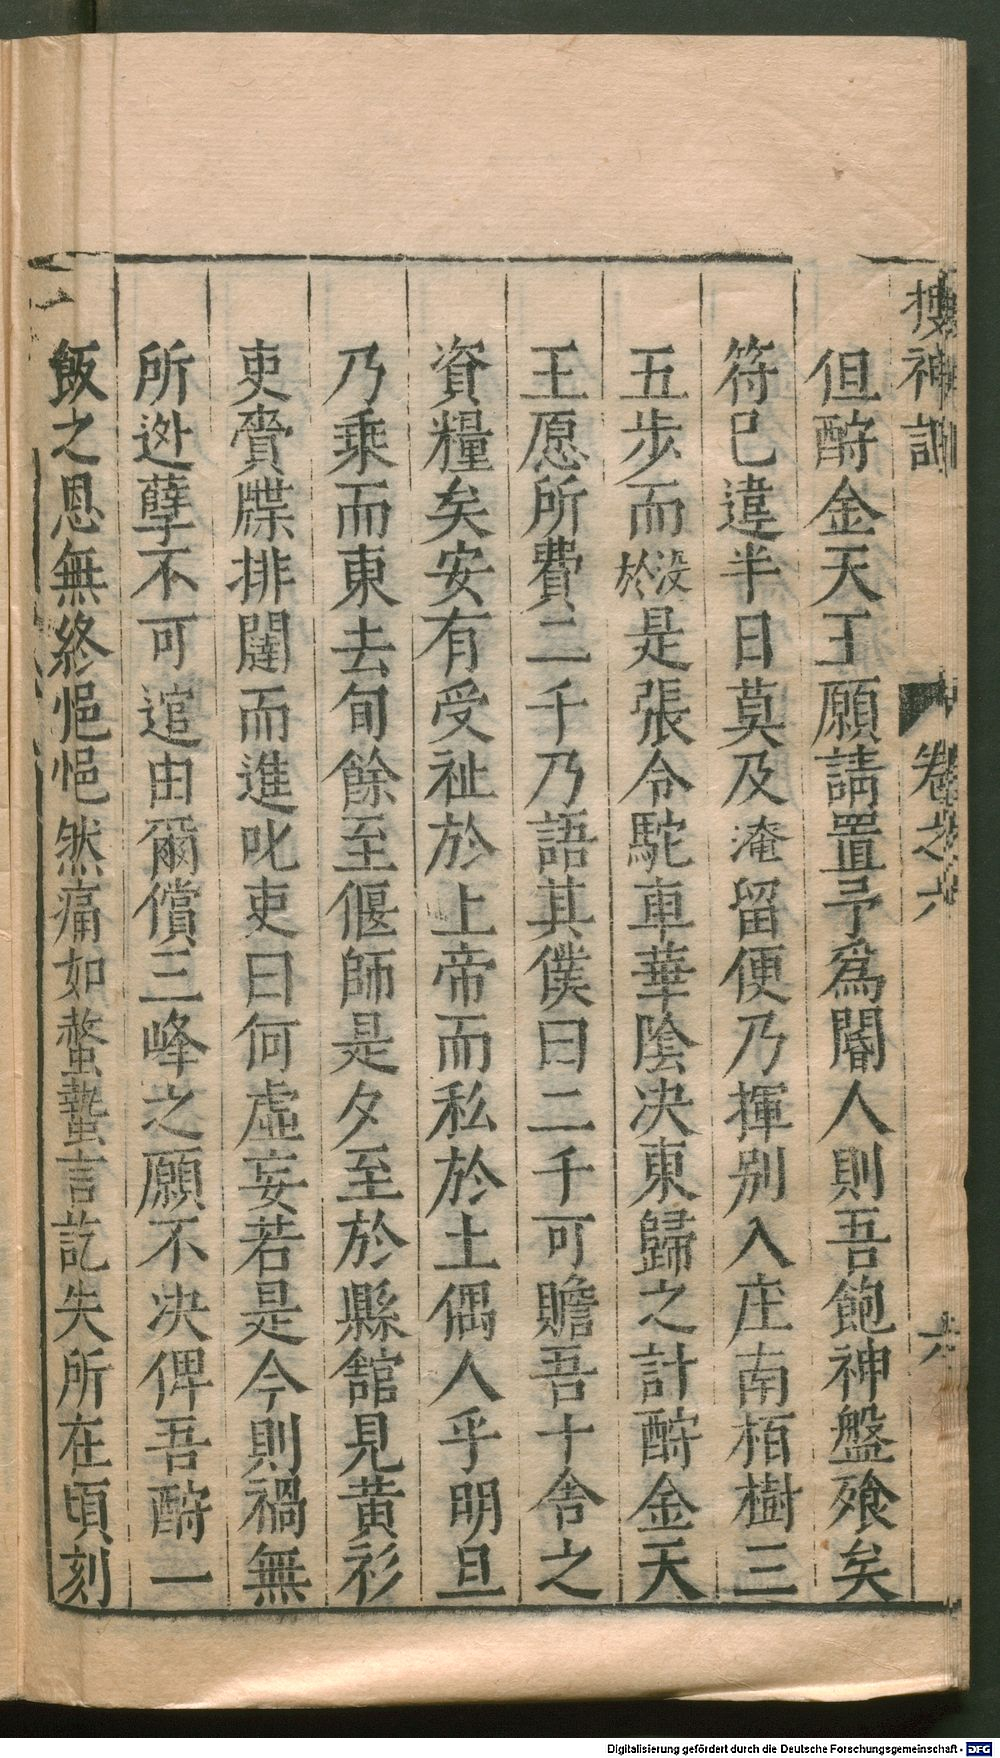 搜神記 卷之六 六
但酧金天王願請置予爲閽人則吾飽神盤飱矣
符已違半日莫及淹留便乃揮别入庄南栢樹三
五步而没於是張令駝車華陰决東歸之計酧金天
王愿所費二千乃語其僕曰二千可贍吾十舍之
資糧矣安有受祉於上帝而私於土偶人乎明旦
乃乘而東去旬餘至偃師是夕至於縣舘見黄衫
吏賫牒排闥而進叱吏曰何虚妄若是今則禍無
所迯孽不可逭由爾償三峰之願不决俾吾酧一
飯之恩無終悒悒然痛如螫蟄言訖失所在頃刻
Digitalisierung gefördert durch die Deutsche Forschungsgemeinschaft - DFG